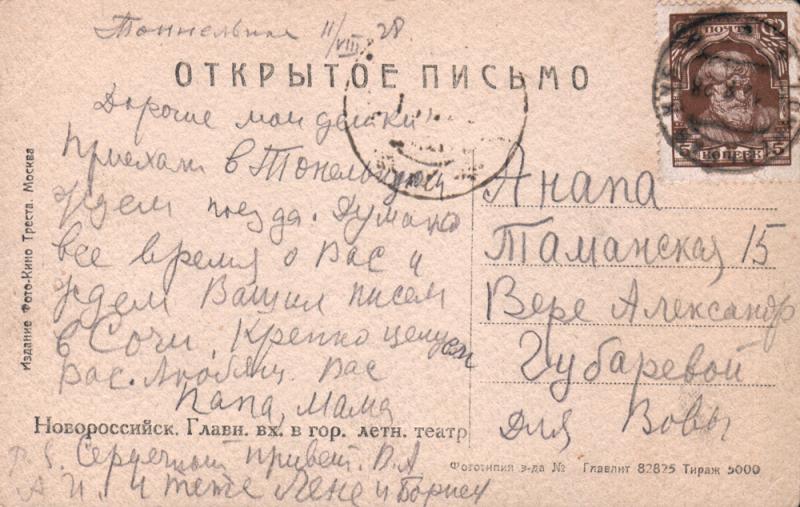 Тоннельная 11/VIII 28
ОТКРЫТОЕ ПИСЬМО
ПОЧТА
5 КОПЕЕК 5
Дорогие мои детки
Приехали в Тонельную
ждем поезда. Думаю
все время о Вас и
ждем Ваших писем
в Сочи. Крепко целуем
Вас. Любящ. Вас
Папа, мама
P.S. Сердечный привет. В.А
А И. и тете Лене и Борису
Анапа
Таманская 15
Вере Александр
Губаревой
для Вовы
Новороссийск. Главн. вх. в гор. летн. театр
Фототипия з-да № Главлит 82825 Тираж 5000
Издание Фото-Кино Треста. Москва